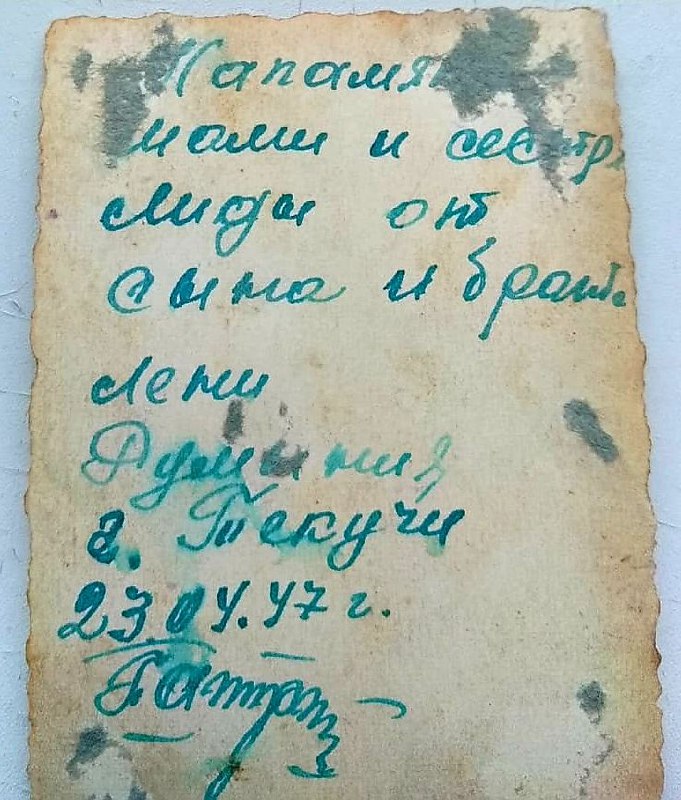 На памя
мами и сестр
Лиды от
сына и брата
Лени
Румыния
г. Текучи
23.04.47 г.